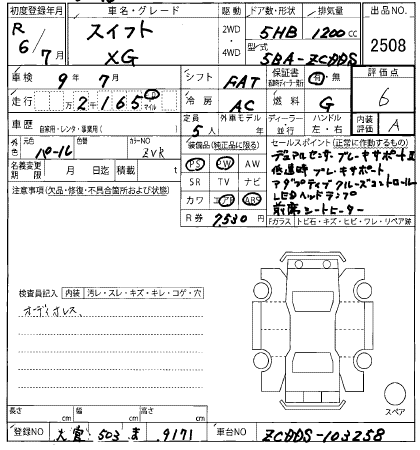 初度登録年月 車名・グレード 駆動 ドア数・形状 排気量 出品NO
R 6/7月 スイフト XG 2WD 4WD 5HB 1200cc
型式 5BA-ZCDDS 2508
車検 9年 7月 シフト FAT 保証書 有・無 評価点
走行 万 2千 165 マイル 冷房 AC 燃料 G 6
車歴 自家用・レンタ・事業用( ) 定員 5人 外車モデル 年 ディーラー 並行 ハンドル 左・右 内装評価 A
外色 元色 パール 色替 カラーNO ZVR 装備品(純正品に限る) セールスポイント(正常に作動するもの)
名義変更期限 月 日 積載 t PS PW AW デュアルセンサーブレーキサポートII
注意事項(欠品・修復・不具合箇所および状態) SR TV ナビ 低速時ブレーキサポート
カワ エアB ABS アダプティブクルーズコントロール
LEDヘッドランプ
R券 7530円 前席シートヒーター
Fガラス トビ石・キズ・ヒビ・ワレ・リペア跡
検査員記入 内装 汚レ・スレ・キズ・キレ・コゲ・穴
オーディオレス、
スペア
長さ cm 幅 cm 高さ cm
登録NO 大宮 503 ま 9171 車台NO ZCDDS-103258